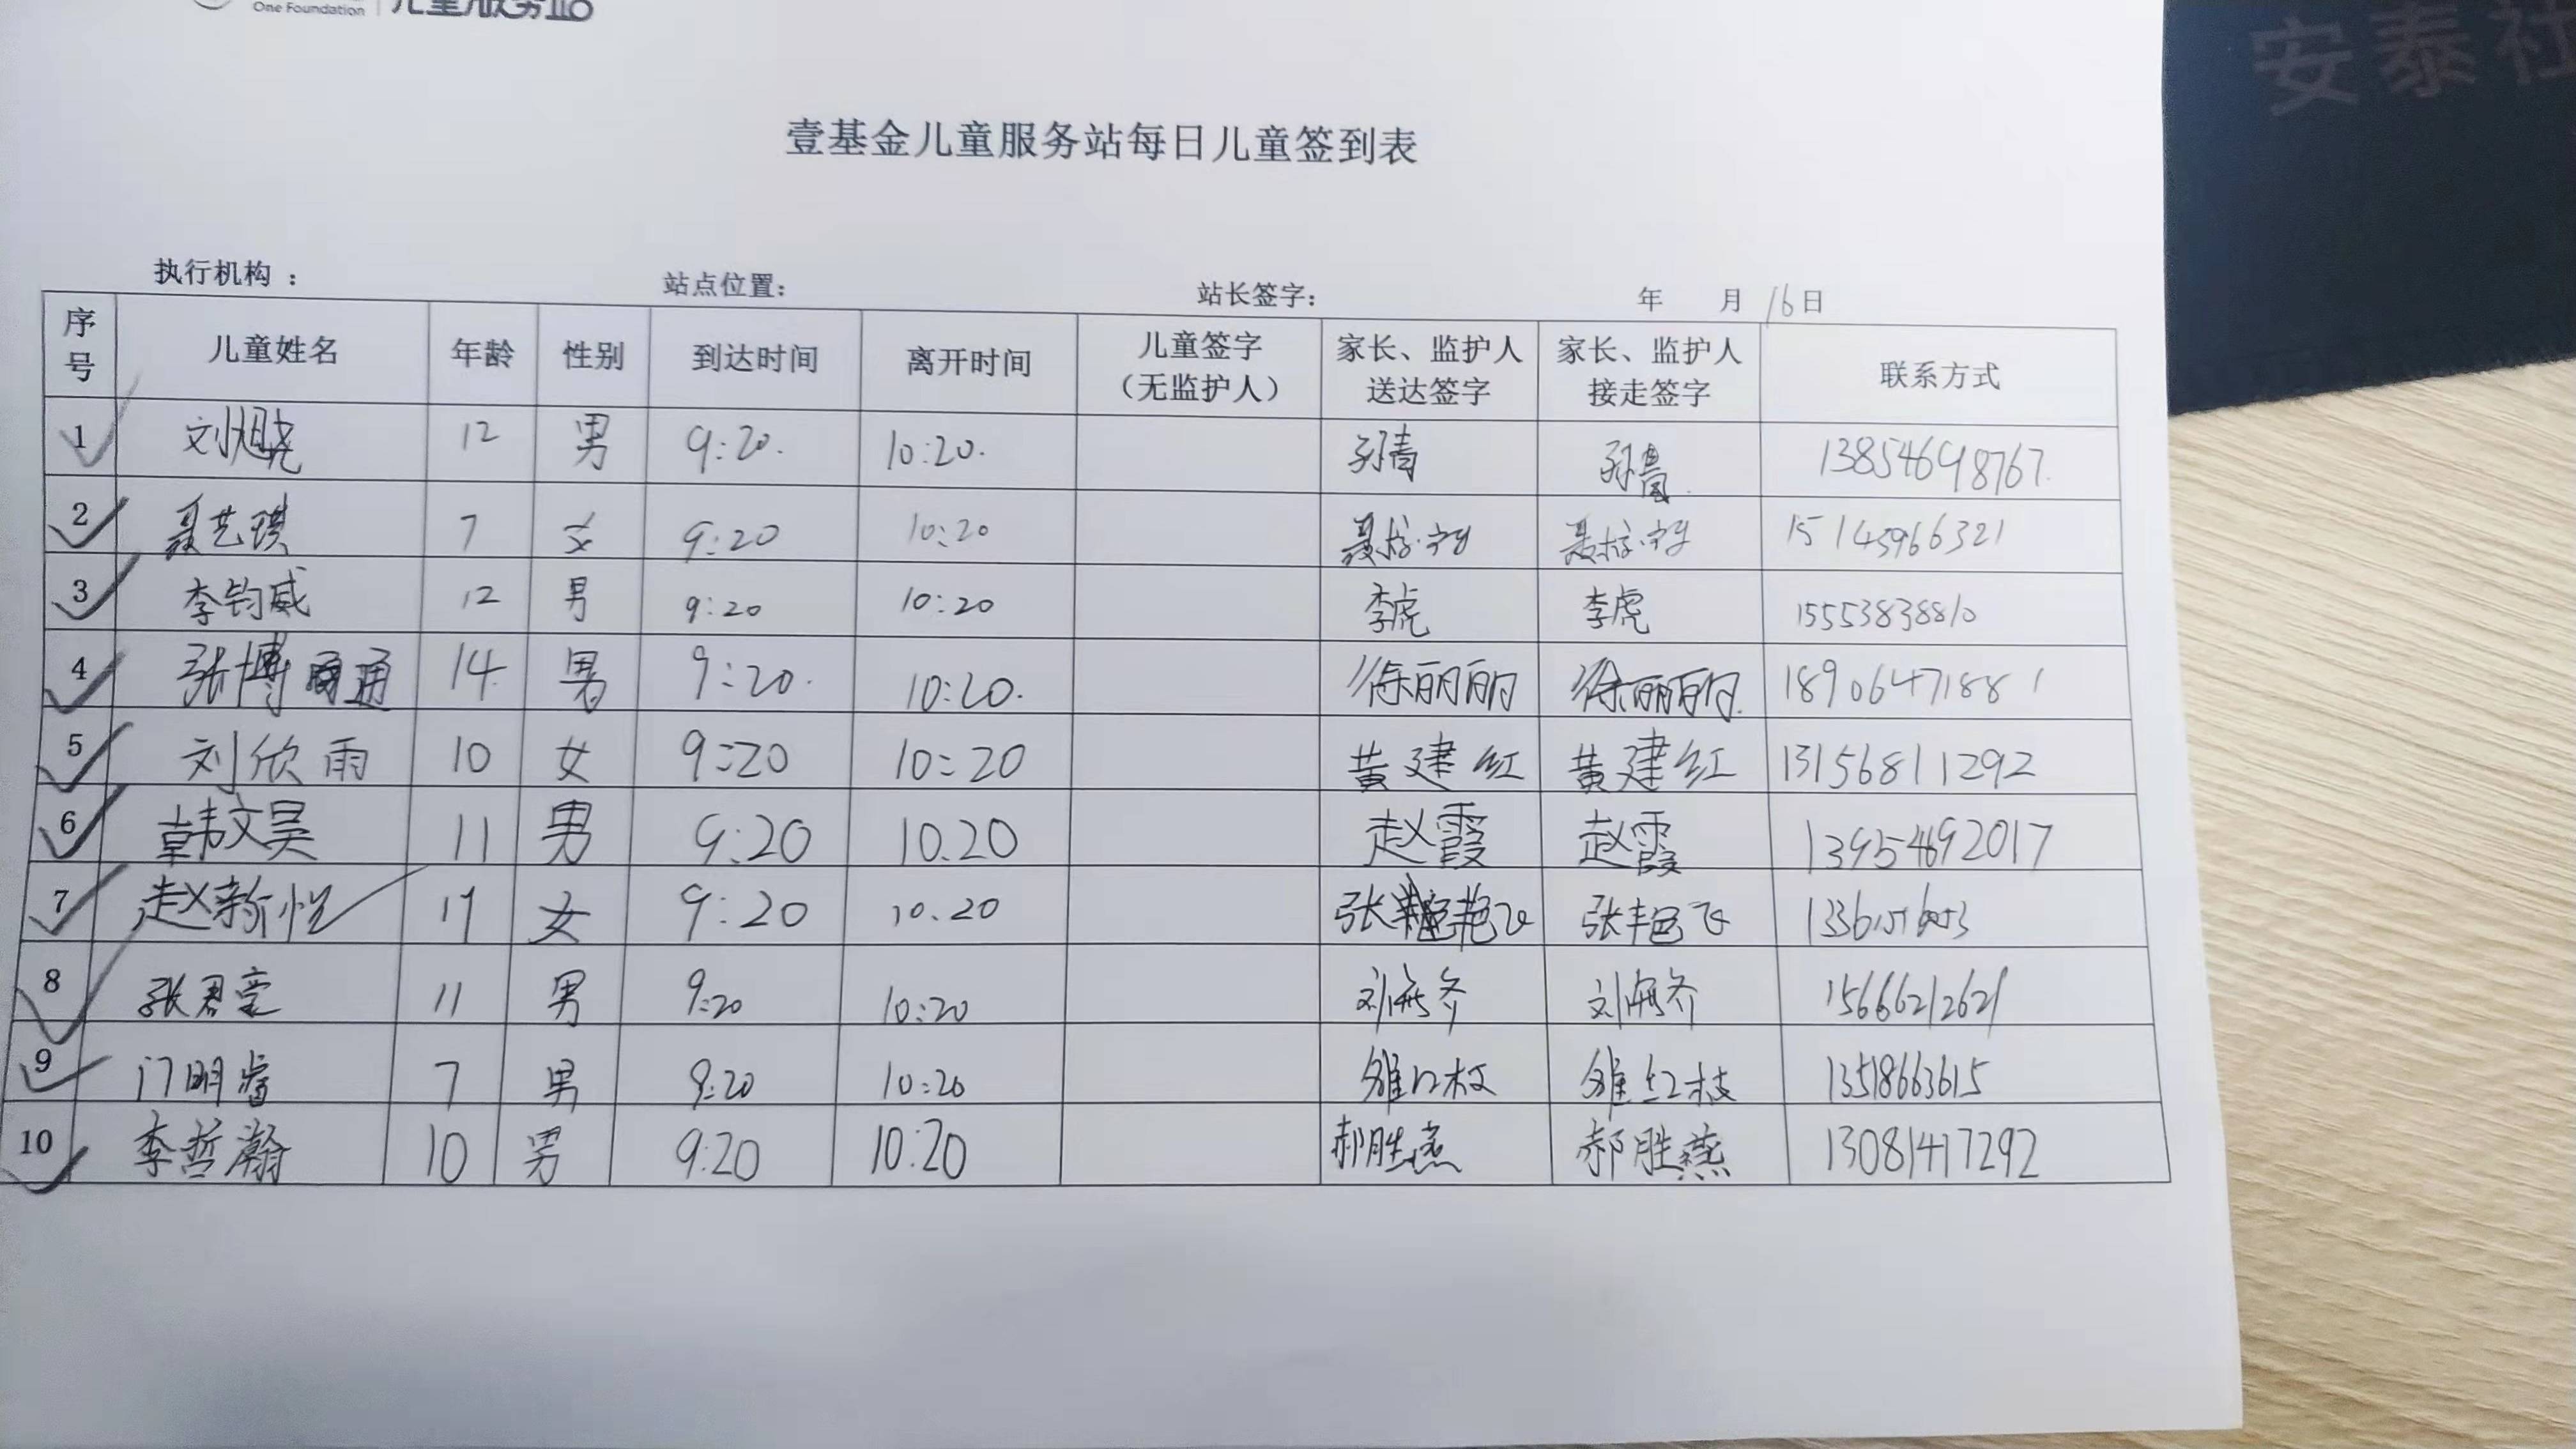 One Foundation 儿童服务站
安泰社
壹基金儿童服务站每日儿童签到表
执行机构 : 站点位置: 站长签字: 年 月 16日
序号 儿童姓名 年龄 性别 到达时间 离开时间 儿童签字(无监护人) 家长、监护人送达签字 家长、监护人接走签字 联系方式
1 刘旭晓 12 男 9:20. 10:20. 孙青 13854698767.
2 聂艺琪 7 女 9:20 10:20 15145966321
3 李钧威 12 男 9:20 10:20 李虎 李虎 15553838810
4 张博通 14 男 9:20. 10:20. 徐丽丽 徐丽丽 18906471881
5 刘欣雨 10 女 9:20 10:20 黄建红 黄建红 13156811292
6 韩文昊 11 男 9:20 10.20 赵霞 赵霞 13954692017
7 赵新悦 女 9:20 10.20 张艳飞 张艳飞
8 张君豪 11 男 9:20 10:20 15666212621
9 门明睿 7 男 9:20 10:20 雒红枝 雒红枝 13518663615
10 李哲瀚 10 男 9:20 10:20 郝胜燕 郝胜燕 13081417292